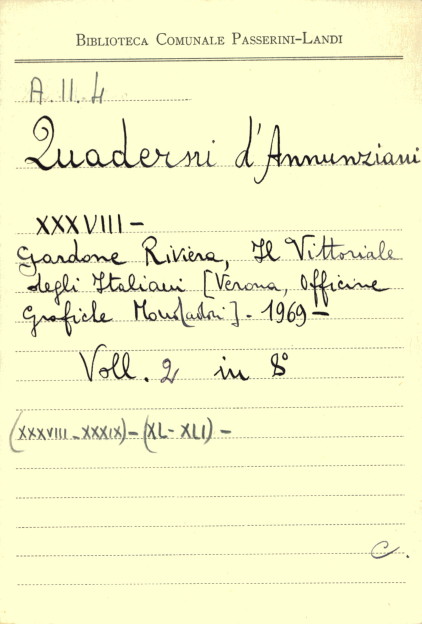 BIBLIOTECA COMUNALE PASSERINI-LANDI
A.II.4
Quaderni d'Annunziani
XXXVIII -
Gardone Riviera, Il Vittoriale
degli Italiani [Verona, Officine
Grafiche Mondadori] - 1969 -
Voll. 2 in 8°
(XXXVIII - XXXIX) - (XL - XLI) -
C.